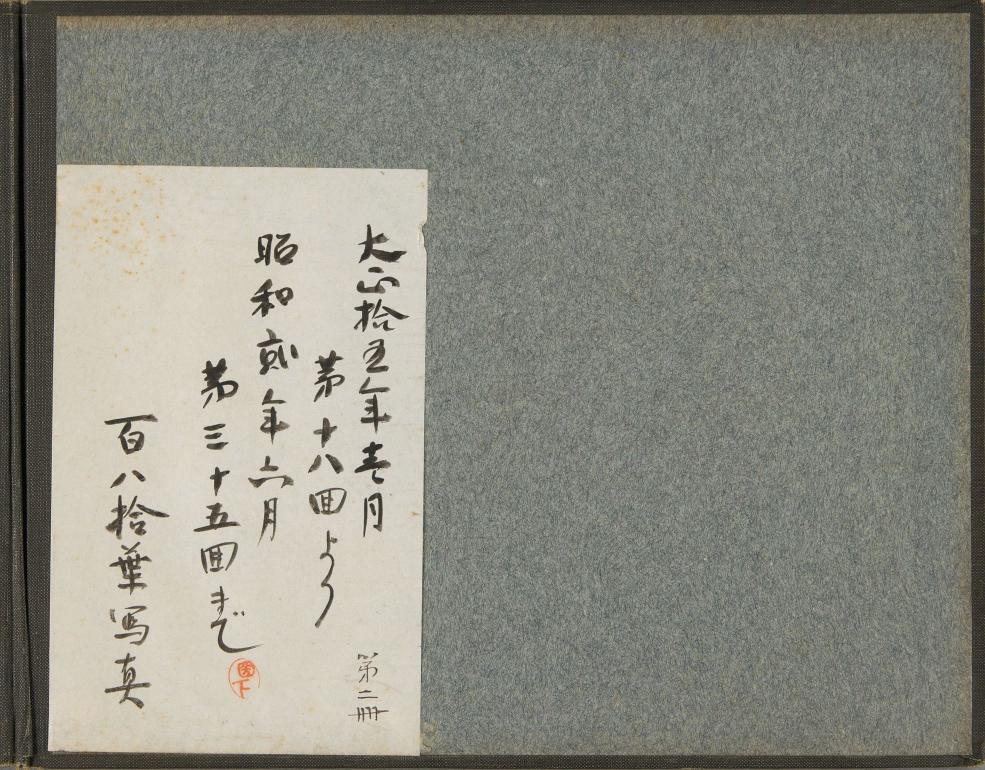 大正拾五年壱月
第十八回より
昭和弐年六月
第三十五回まで
百八拾葉写真
第二冊